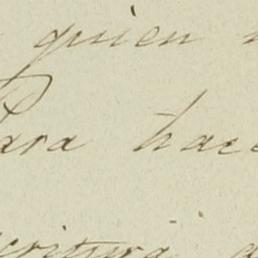 quien
Para hace
critura